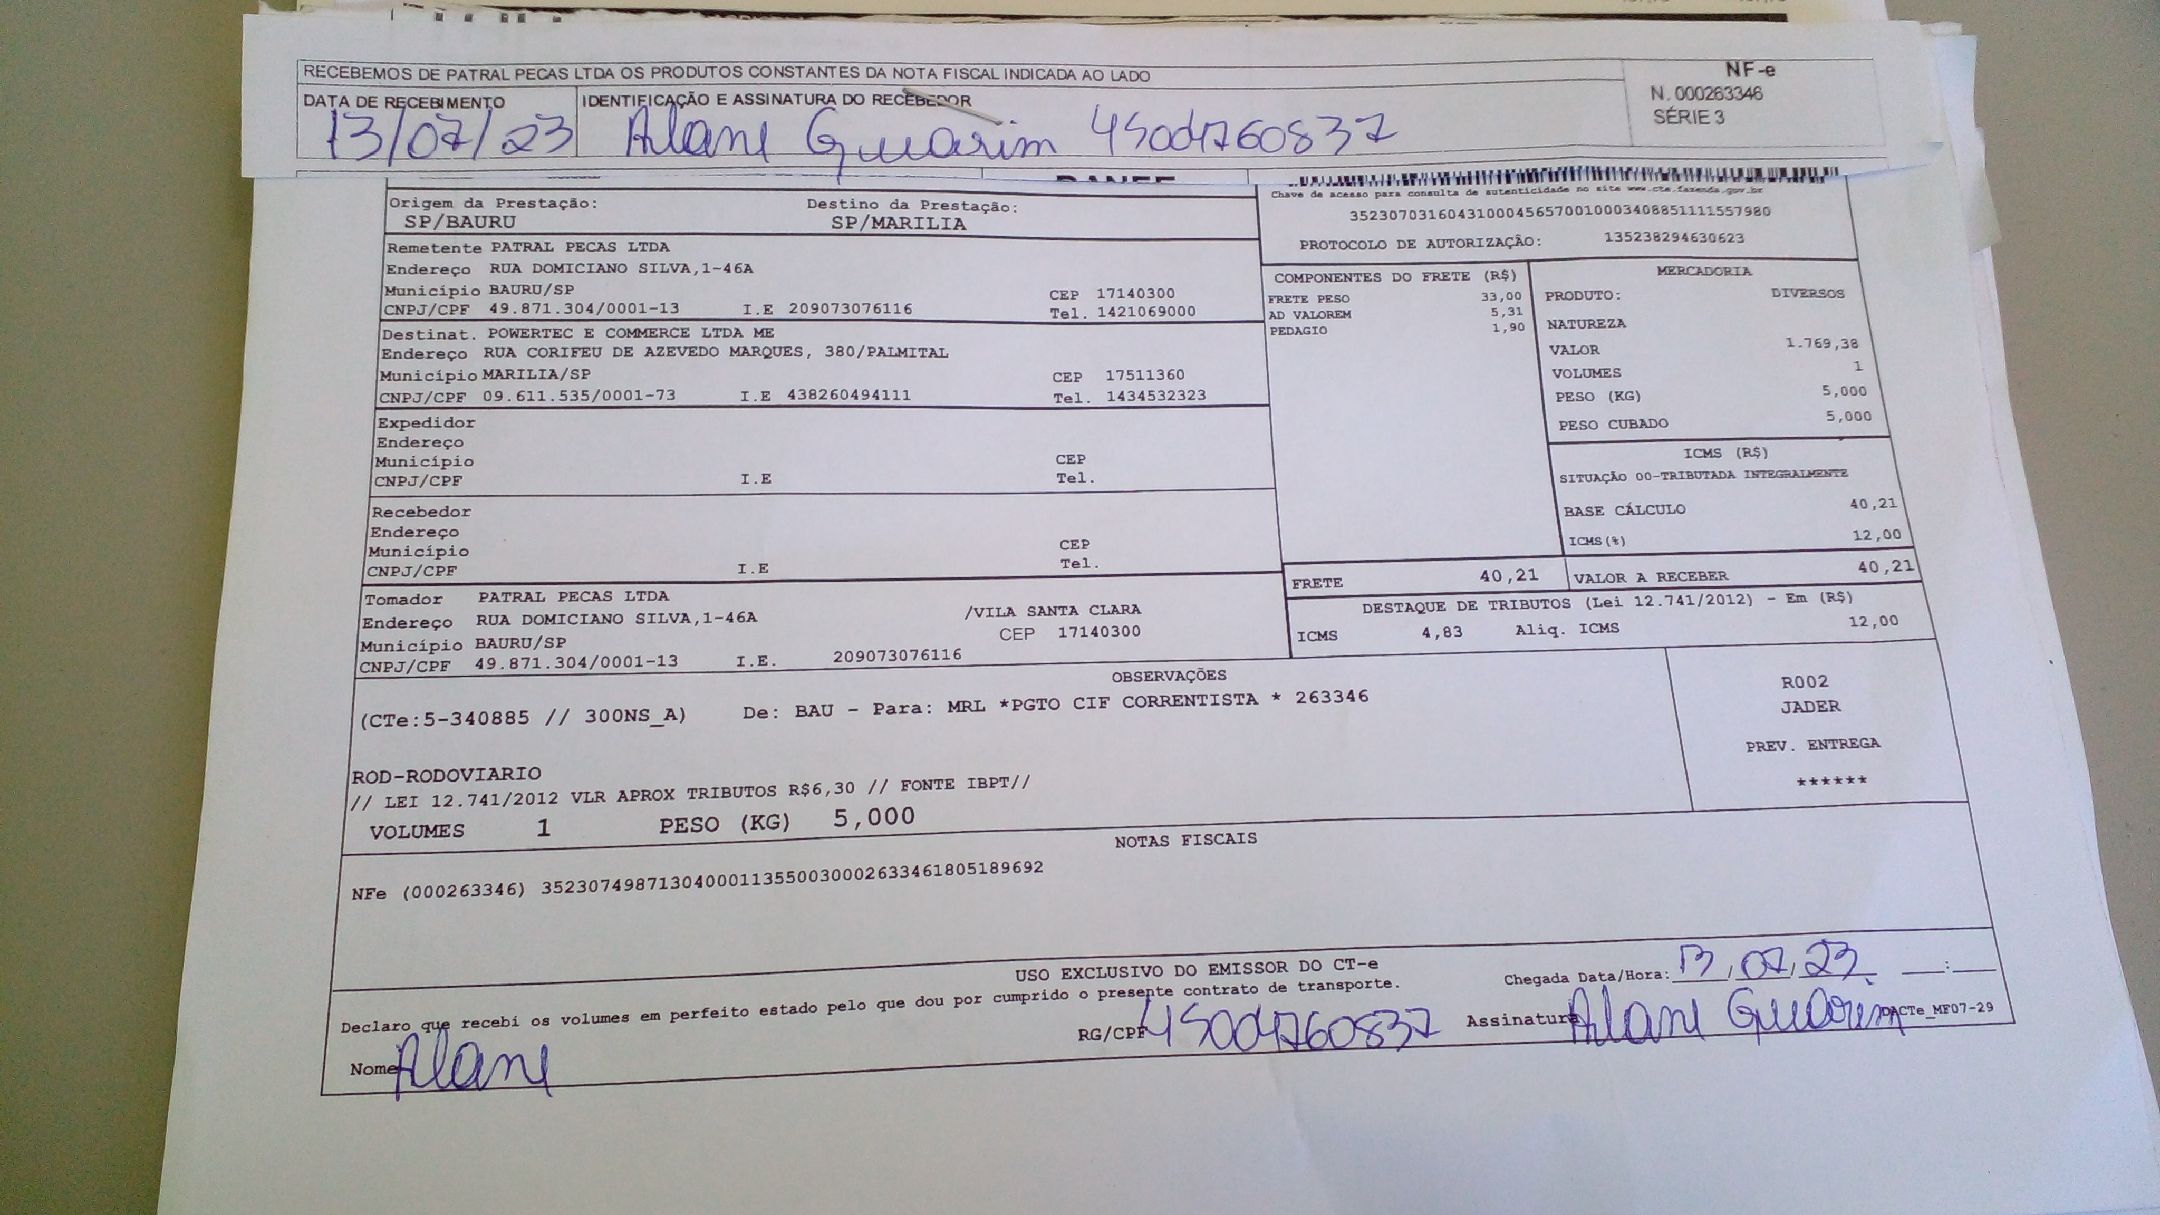 RECEBEMOS DE PATRAL PECAS LTDA OS PRODUTOS CONSTANTES DA NOTA FISCAL INDICADA AO LADO
NF-e
N. 000263346
SÉRIE 3
DATA DE RECEBIMENTO
IDENTIFICAÇÃO E ASSINATURA DO RECEBEDOR
13/07/23 Alane Guarim 45004760837
Chave de acesso para consulta de autenticidade no site www.cte.fazenda.gov.br
35230703160431000456570010003408851111557980
PROTOCOLO DE AUTORIZAÇÃO: 135238294630623
Origem da Prestação: Destino da Prestação:
SP/BAURU SP/MARILIA
Remetente PATRAL PECAS LTDA
Endereço RUA DOMICIANO SILVA,1-46A
Município BAURU/SP CEP 17140300
CNPJ/CPF 49.871.304/0001-13 I.E 209073076116 Tel. 1421069000
Destinat. POWERTEC E COMMERCE LTDA ME
Endereço RUA CORIFEU DE AZEVEDO MARQUES, 380/PALMITAL
Município MARILIA/SP CEP 17511360
CNPJ/CPF 09.611.535/0001-73 I.E 438260494111 Tel. 1434532323
Expedidor
Endereço
Município CEP
CNPJ/CPF I.E Tel.
Recebedor
Endereço
Município CEP
CNPJ/CPF I.E Tel.
Tomador PATRAL PECAS LTDA
Endereço RUA DOMICIANO SILVA,1-46A /VILA SANTA CLARA
Município BAURU/SP CEP 17140300
CNPJ/CPF 49.871.304/0001-13 I.E. 209073076116
COMPONENTES DO FRETE (R$)
FRETE PESO 33,00
AD VALOREM 5,31
PEDAGIO 1,90
MERCADORIA
PRODUTO: DIVERSOS
NATUREZA
VALOR 1.769,38
VOLUMES 1
PESO (KG) 5,000
PESO CUBADO 5,000
ICMS (R$)
SITUAÇÃO 00-TRIBUTADA INTEGRALMENTE
BASE CÁLCULO 40,21
ICMS(%) 12,00
FRETE 40,21 VALOR A RECEBER 40,21
DESTAQUE DE TRIBUTOS (Lei 12.741/2012) - Em (R$)
ICMS 4,83 Aliq. ICMS 12,00
OBSERVAÇÕES
(CTe:5-340885 // 300NS_A) De: BAU - Para: MRL *PGTO CIF CORRENTISTA * 263346
ROD-RODOVIARIO
// LEI 12.741/2012 VLR APROX TRIBUTOS R$6,30 // FONTE IBPT//
VOLUMES 1 PESO (KG) 5,000
R002
JADER
PREV. ENTREGA
******
NOTAS FISCAIS
NFe (000263346) 35230749871304000113550030002633461805189692
USO EXCLUSIVO DO EMISSOR DO CT-e
Declaro que recebi os volumes em perfeito estado pelo que dou por cumprido o presente contrato de transporte.
Chegada Data/Hora: 13/07/23 __:__
Nome Alane RG/CPF 45004760837 Assinatura Alane Guarim
DACTe_MF07-29